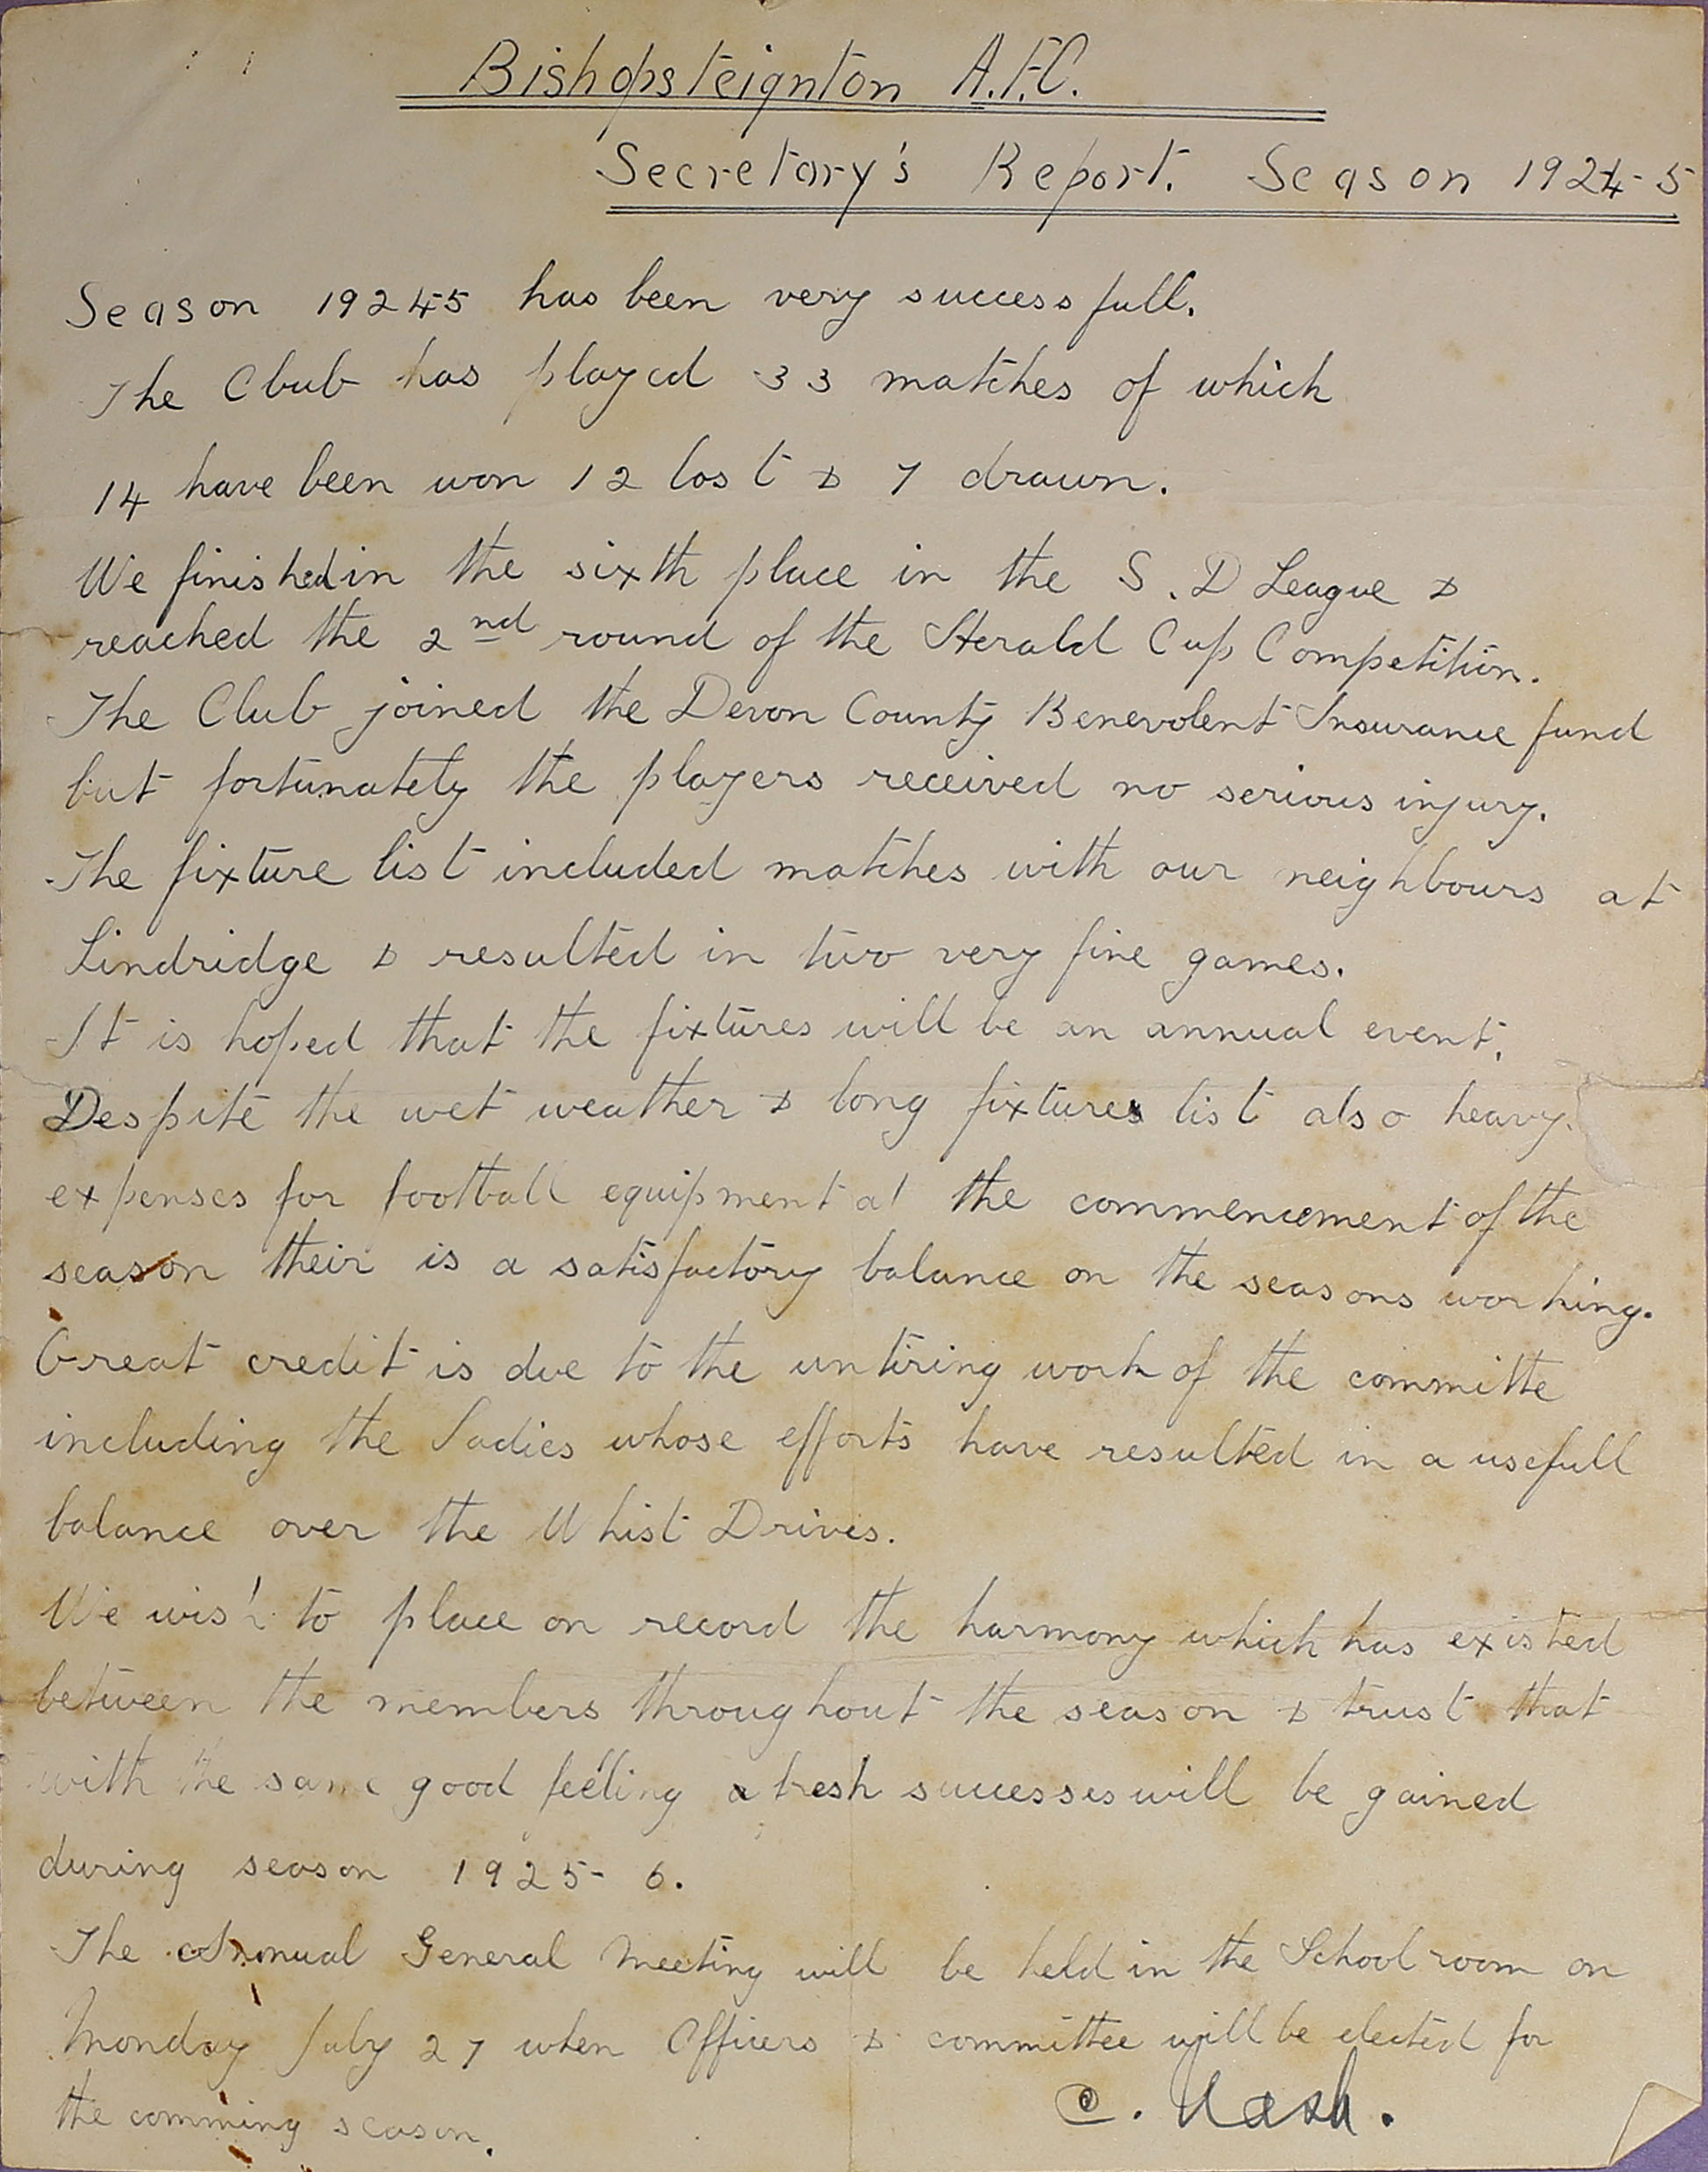 Bishopsteignton A.F.C.
Secretary's Report. Season 1924-5
Season 1924-5 has been very successfull.
The Club has played 33 matches of which
14 have been won 12 lost & 7 drawn.
We finished in the sixth place in the S.D League &
reached the 2nd round of the Herald Cup Competition.
The Club joined the Devon County Benevolent Insurance fund
but fortunately the players received no serious injury.
The fixture list included matches with our neighbours at
Lindridge & resulted in two very fine games.
It is hoped that the fixtures will be an annual event.
Despite the wet weather & long fixtures list also heavy
expenses for football equipment at the commencement of the
season their is a satisfactory balance on the seasons working.
Great credit is due to the untiring work of the committe
including the Ladies whose efforts have resulted in a usefull
balance over the Whist Drives.
We wish to place on record the harmony which has existed
between the members throughout the season & trust that
with the same good feeling fresh successes will be gained
during season 1925-6.
The Annual General Meeting will be held in the School room on
Monday July 27 when Officers & committee will be elected for
the comming season.
C. Nash.